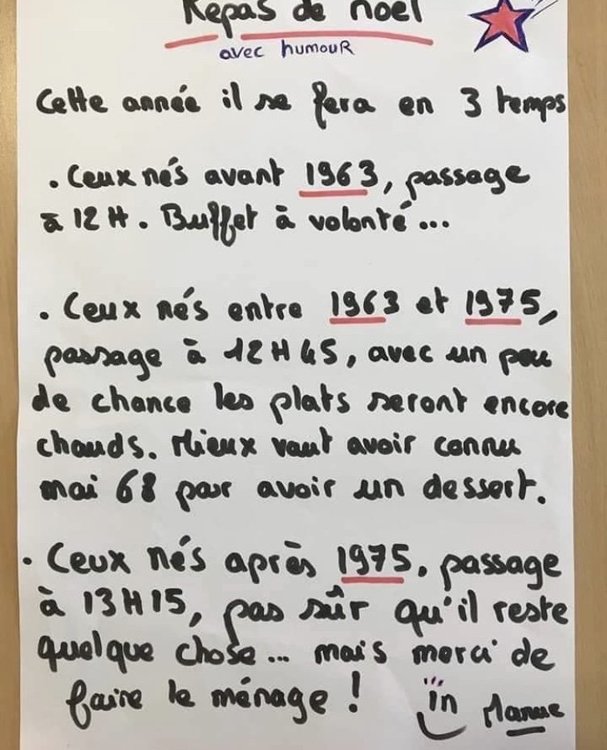 Repas de noel
avec humouR
Cette année il se fera en 3 temps
. Ceux nés avant 1963, passage
à 12H. Buffet à volonté...
. Ceux nés entre 1963 et 1975,
passage à 12H45, avec un peu
de chance les plats seront encore
chauds. Mieux vaut avoir connu
mai 68 par avoir un dessert.
. Ceux nés après 1975, passage
à 13H15, pas sûr qu'il reste
quelque chose... mais merci de
faire le ménage !
in Manue